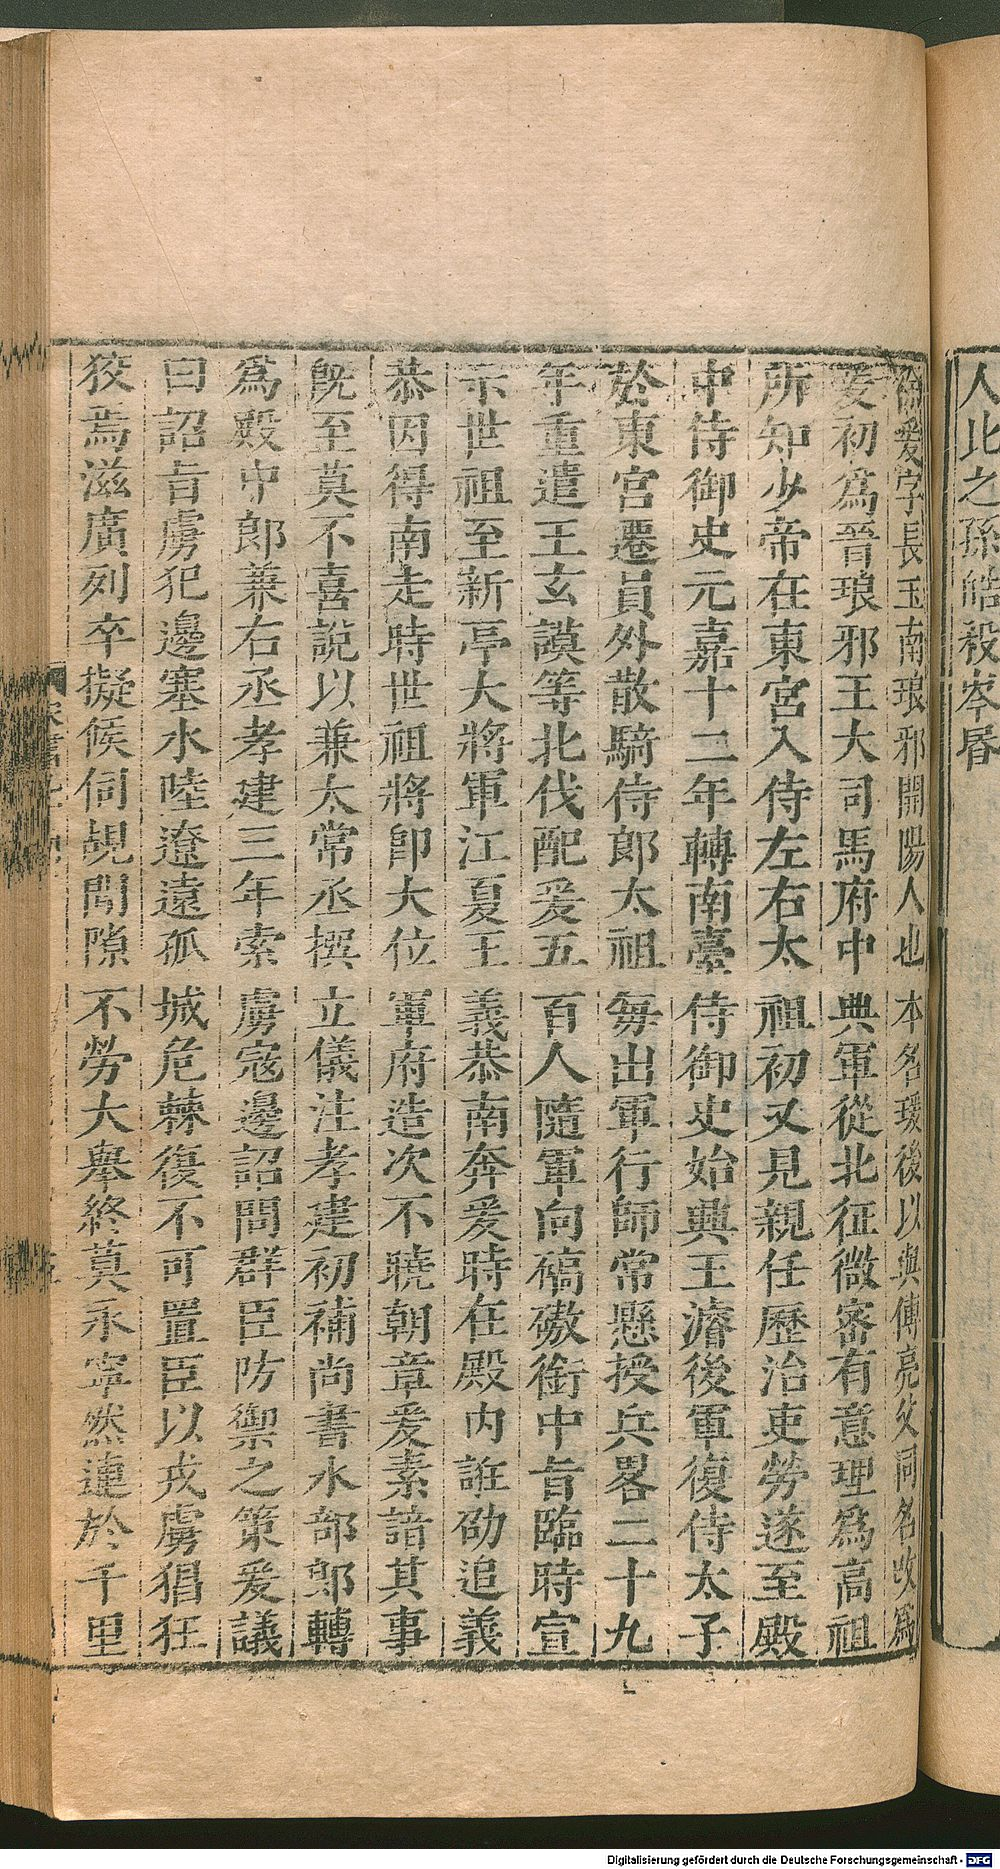 人比之孫皓殺岑昬
徐爰字長玉南琅邪開陽人也本名瑗後以與傅亮父同名改爲
爰初爲晉琅邪王大司馬府中典軍從北征微密有意理爲高祖
所知少帝在東宮入侍左右太祖初又見親任歷治吏勞遂至殿
中侍御史元嘉十二年轉南臺侍御史始興王濬後軍復侍太子
於東宮遷員外散騎侍郎太祖每出軍行師常懸授兵畧二十九
年重遣王玄謨等北伐配爰五百人隨軍向碻磝銜中旨臨時宣
示世祖至新亭大將軍江夏王義恭南奔爰時在殿内誑劭追義
恭因得南走時世祖將卽大位軍府造次不曉朝章爰素諳其事
旣至莫不喜說以兼太常丞撰立儀注孝建初補尚書水部郎轉
爲殿中郎兼右丞孝建三年索虜寇邊詔問群臣防禦之策爰議
曰詔旨虜犯邊塞水陸遼遠孤城危棘復不可置臣以戎虜猖狂
狡焉滋廣列卒擬候伺覘間隙不勞大舉終莫永寧然連於千里
Digitalisierung gefördert durch die Deutsche Forschungsgemeinschaft - DFG